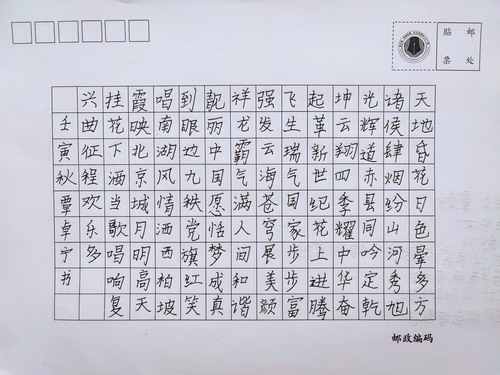 貼邮
票处
天地昏花日色晕多方
诸侯肆烟纷山河秀旭
光辉道赤县间吟定乾
坤云翔四季耀中华奋
起革新世纪花上进腾
飞生瑞气国家步步富
强发云海苍穹展美颜
祥龙霸气满人间和谐
靓丽中国愿恬梦成真
到眼边九秩党旗红笑
唱南湖风情洒西柏坡
霞映北京城月明高天
挂花下洒当歌唱响复
兴曲征程欢乐多
壬寅秋覃卓宁书
邮政编码